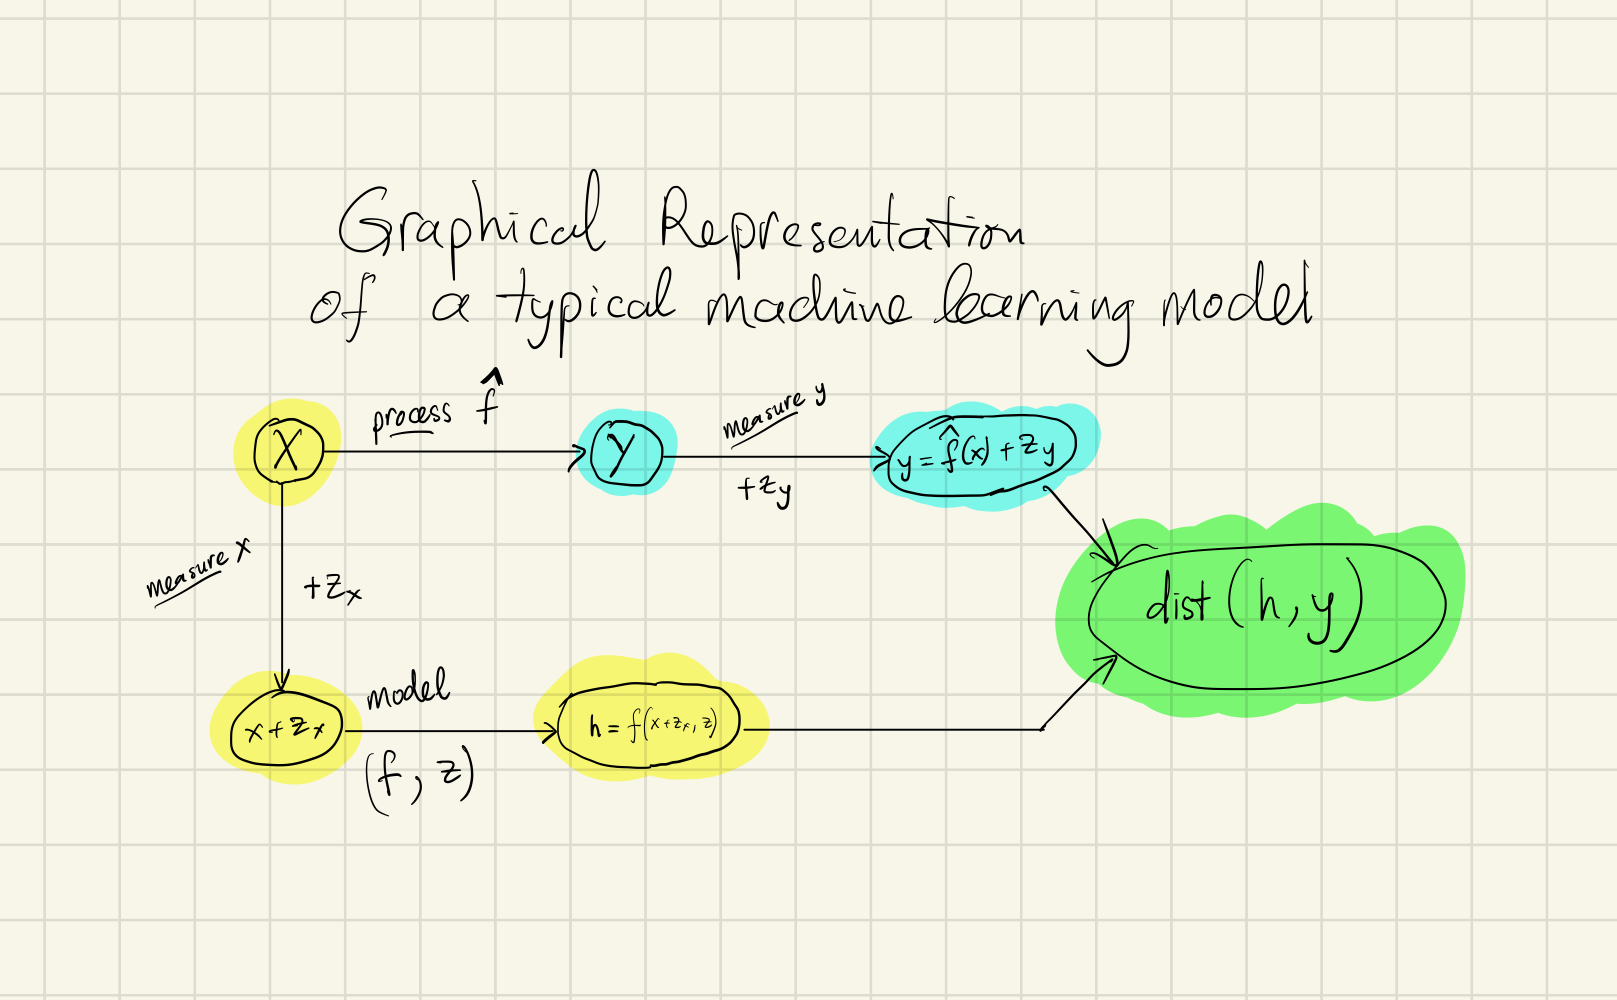 Graphical Representation
of a typical machine learning model
X
process f̂
Y
measure y
+ z_y
y = f̂(x) + z_y
measure x
+ z_x
dist (h, y)
x + z_x
model
(f, z)
h = f(x + z_x, z)